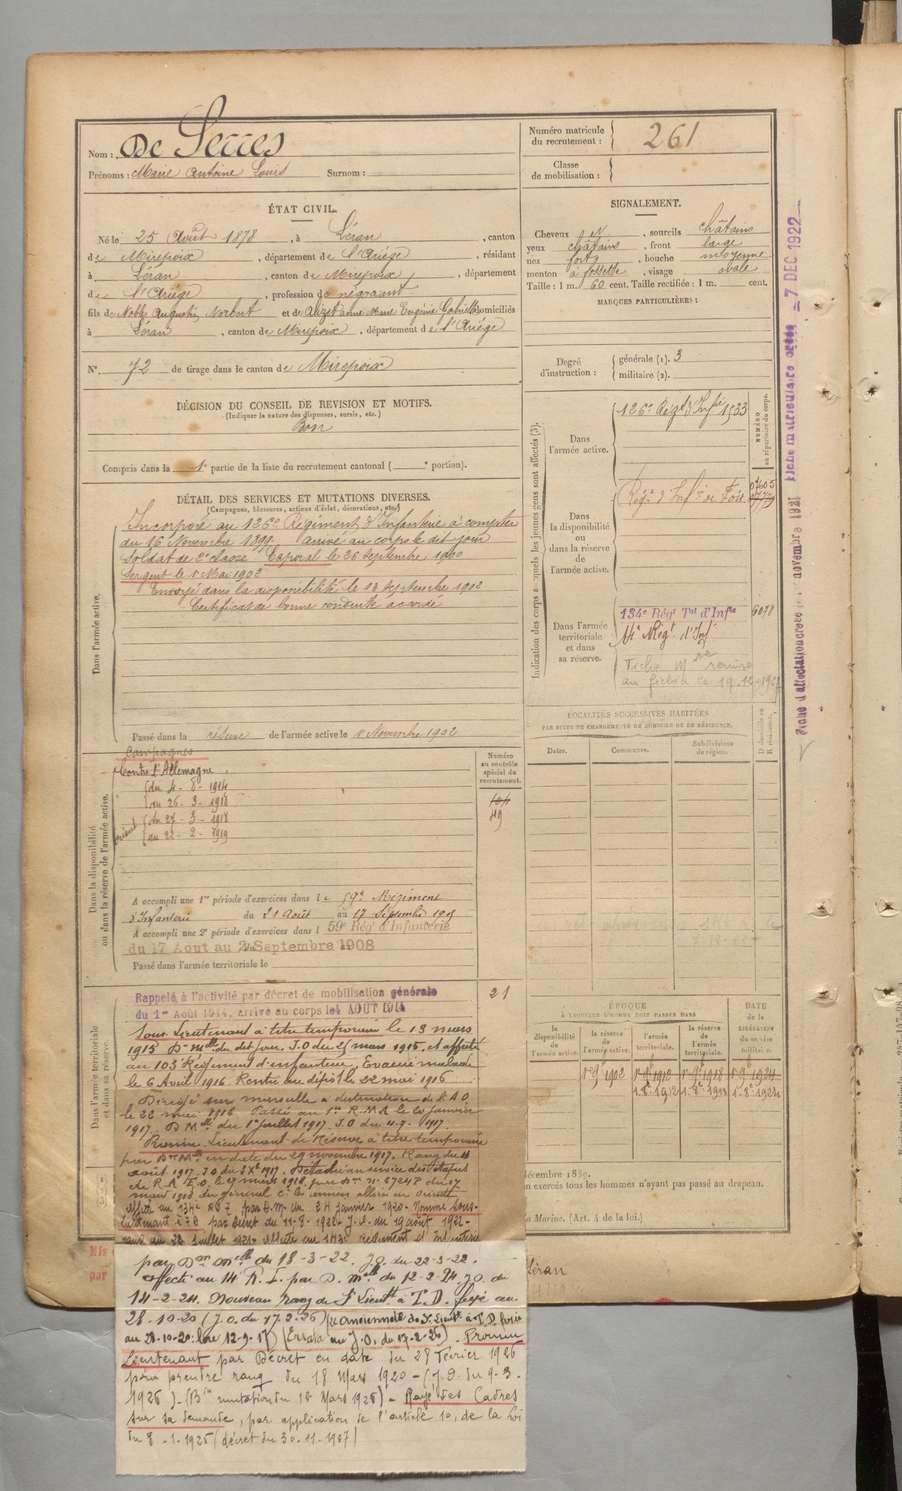 Nom : De Serres
Prénoms : Marie Antoine Louis Surnom :
Numéro matricule du recrutement : 261
Classe de mobilisation :
ÉTAT CIVIL.
Né le 25 Août 1878, à Léran, canton
de Mirepoix, département de l'Ariège, résidant
à Léran, canton de Mirepoix, département
de l'Ariège, profession de négociant
fils de Noble Augustin Norbert et de Marie Eugénie Gabrielle domiciliés
à Léran, canton de Mirepoix, département de l'Ariège
N° 72 de tirage dans le canton de Mirepoix
SIGNALEMENT.
Cheveux N, sourcils châtains
yeux châtains, front large
nez fort, bouche moyenne
menton à fossette, visage ovale
Taille : 1 m. 60 cent. Taille rectifiée : 1 m. cent.
MARQUES PARTICULIÈRES :
Degré d'instruction : générale (1). 3
militaire (2).
DÉCISION DU CONSEIL DE REVISION ET MOTIFS.
(Indiquer la nature des dispenses, sursis, etc.)
Bon
Compris dans la 1e partie de la liste du recrutement cantonal ( e portion).
DÉTAIL DES SERVICES ET MUTATIONS DIVERSES.
(Campagnes, blessures, actions d'éclat, décorations, etc.)
Dans l'armée active.
Incorporé au 126e Régiment d'Infanterie à compter
du 16 Novembre 1899. Arrivé au corps le dit jour
Soldat de 2e classe Caporal le 26 Septembre 1900
Sergent le 1 Mai 1902
Envoyé dans la disponibilité le 13 Septembre 1902
Certificat de bonne conduite accordé
Passé dans la réserve de l'armée active le 1 Novembre 1902
Indication des corps auxquels les jeunes gens sont affectés (3).
NUMÉRO au répertoire du corps.
Dans l'armée active.
126e Régt d'Infie 1533
Dans la disponibilité ou dans la réserve de l'armée active.
Régt d'Infie de Foix
Dans l'armée territoriale et dans sa réserve.
134e Régt Tal d'Infie 6078
14e Régt d'Inf
Fiche Mre remise
au fichier le
Fiche matriculaire créée 7 DEC 1922
Fiche d'affectation créée le novembre 1921
LOCALITÉS SUCCESSIVES HABITÉES
PAR SUITE DE CHANGEMENTS DE DOMICILE OU DE RÉSIDENCE.
Dates. Communes. Subdivisions de région. D domicile ou R résidence.
Dans la disponibilité ou dans la réserve de l'armée active.
Numéro au contrôle spécial du recrutement.
104
49
Campagnes
Contre l'Allemagne
du 4-8-1914
au 26-3-1918
Orient du 27-3-1918
au 22-2-1919
A accompli une 1re période d'exercices dans le 59e Régiment
d'Infanterie du 21 Août au 17 Septembre 1905
A accompli une 2e période d'exercices dans l 59e Régt d'Infanterie
du 17 Aout au Septembre 1908
Passé dans l'armée territoriale le
Dans l'armée territoriale et dans sa réserve.
21
Rappelé à l'activité par décret de mobilisation générale
du 1er Août 1914, arrivé au corps le 4 AOUT 1914
Sous Lieutenant à titre temporaire le 13 mars
1915 D. Melle du dit jour, J.O du 25 mars 1915, et affecté
au 103 Régiment d'infanterie. Evacué malade
le 6 Avril 1916 Rentré au dépôt le 22 mai 1916
Dirigé sur Marseille à destination de l'A.O.
le 22 mai 1916 Passé au 1er R.M.A le 20 janvier
1917. D Melle du 1er juillet 1917. J.O du 4-7-1917.
Promu Lieutenant de Réserve à titre temporaire
par Don Melle en date du 29 novembre 1917. Rang du
août 1917. J.O du 1917. Détaché au service des étapes
mars 1918 du général Ct les armées alliées en Orient
affecté au 134e RIT par D.M. du 24 janvier 1920. Nommé Sous-
lieutenant à T.D par Décret du J.O. du 19 août 1922
par Don Melle du 18-3-22. J.O. du 22-3-22.
affecté au 14 R.I. par D. Melle du 12-2-24. J.O. du
14-2-24. Nouveau rang de S/Lieutt à T.D. fixé au
28-10-20 (J.O. du 17-2-26) (ancienneté de S. Lieutt à T.D. fixée
au 28-10-20: lire 12-9-17) (Errata au J.O. du 17-2-26). Promu
Lieutenant par Décret en date du 28 Février 1926
pour prendre rang du 18 Mars 1920 - (J.O. du 9-3-
1926) - (Bin mutation du 18 Mars 1926) - Rayé des Cadres
sur sa demande, par application de l'article 10, de la Loi
du 8-1-1925 (décret du 30-11-1937)
ÉPOQUE
À LAQUELLE L'HOMME DOIT PASSER DANS
la disponibilité de l'armée active. la réserve de l'armée active. l'armée territoriale. la réserve de l'armée territoriale. DATE de la LIBÉRATION du service militaire.
1er 9bre 1902 1er 9bre 1912 1er 9bre 1918 1er 9bre 1924
1-8e 1912 1-8e 1918 1-8e 1924
décembre 1889.
on exercés tous les hommes n'ayant pas passé au drapeau.
la Marine. (Art. 4 de la loi.)
Léran
Mis
par